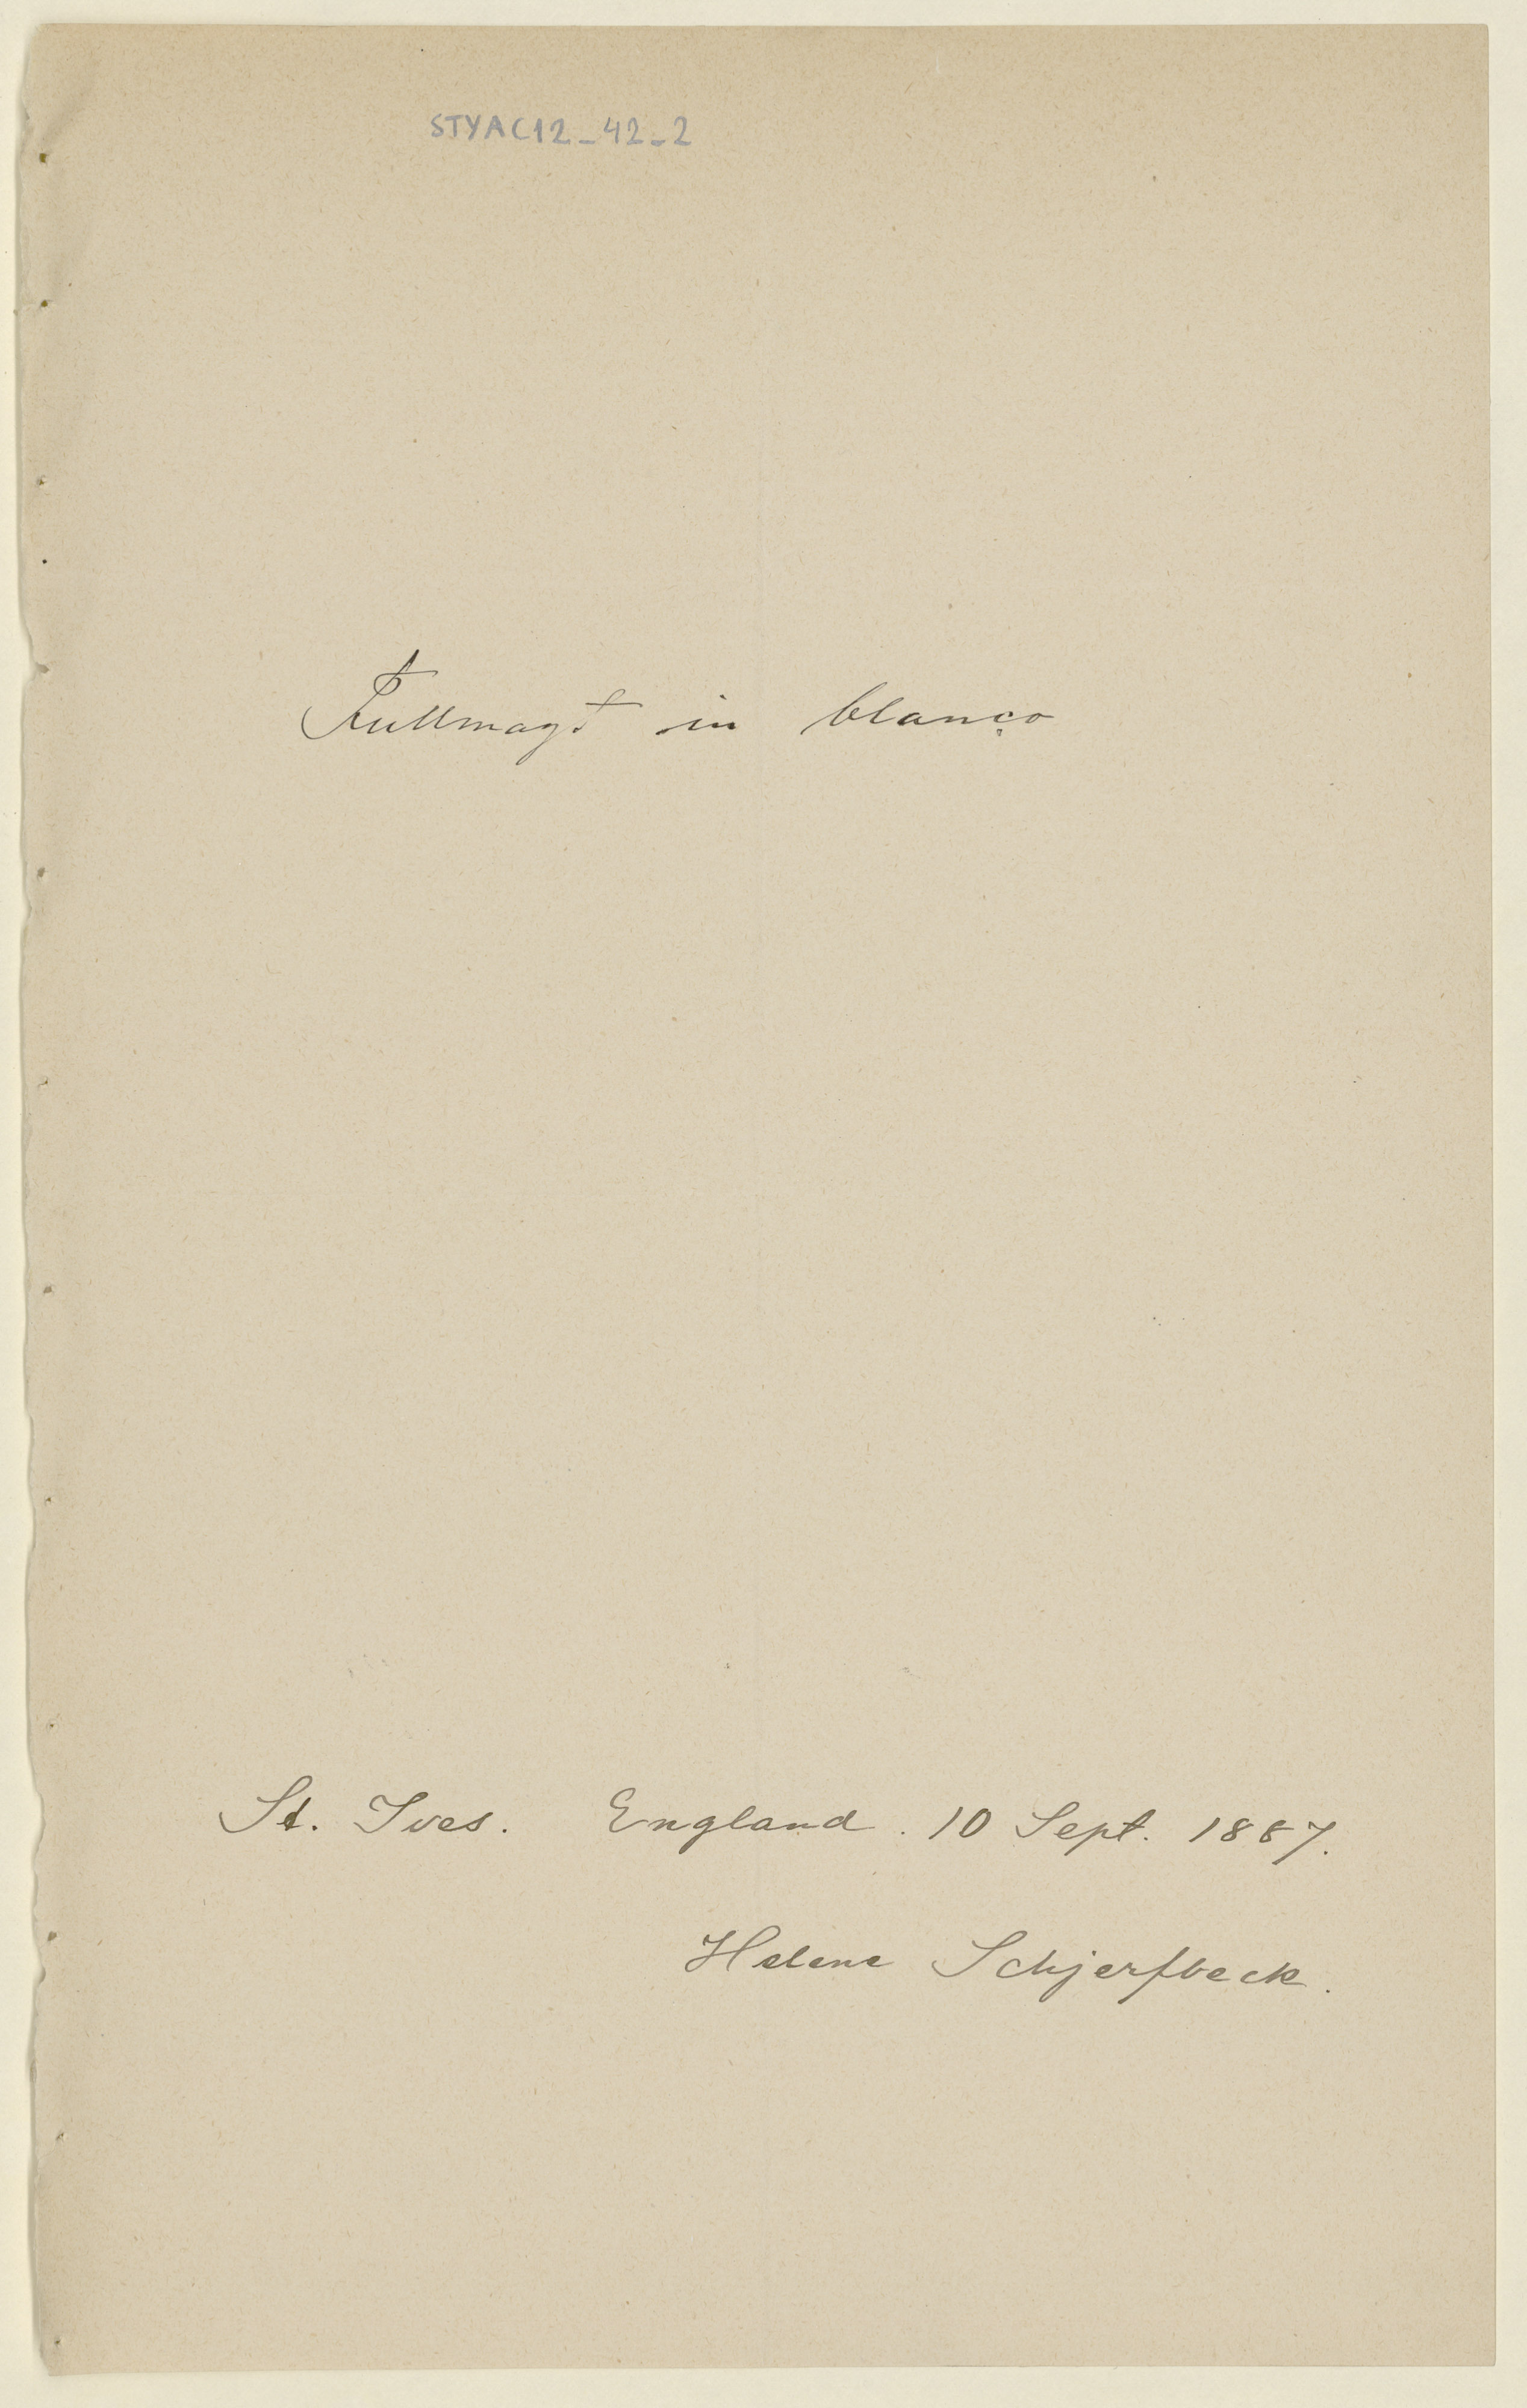 STYAC12_42_2
Fullmagt in blanco
St. Ives. England. 10 Sept. 1887.
Helene Schjerfbeck.